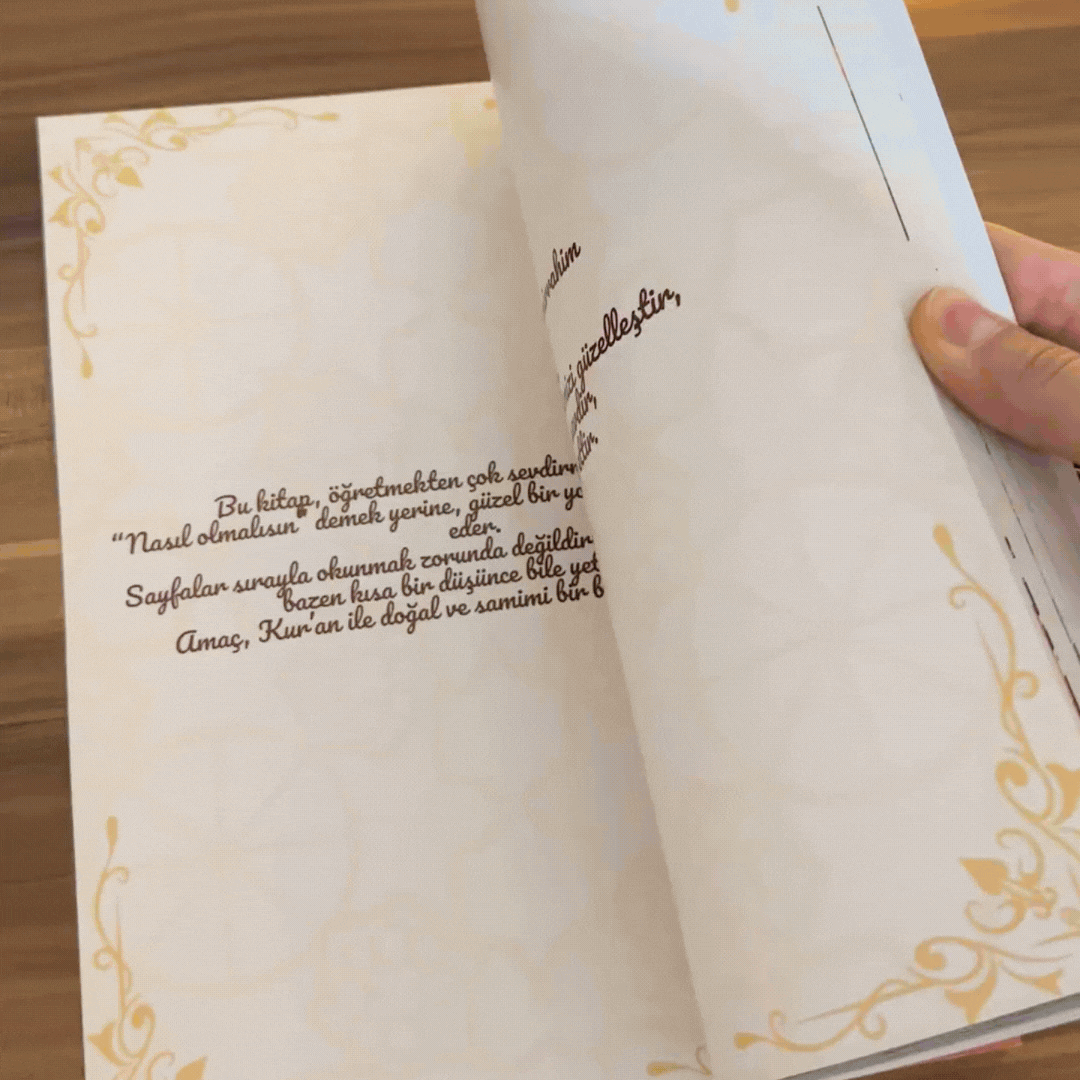 Bu kitap, öğretmekten çok
“Nasıl olmalısın” demek yerine, güzel bir
eder.
Sayfalar sırayla okunmak zorunda değildir
bazen kısa bir düşünce bile
Amaç, Kur'an ile doğal ve samimi bir
güzelleştir,